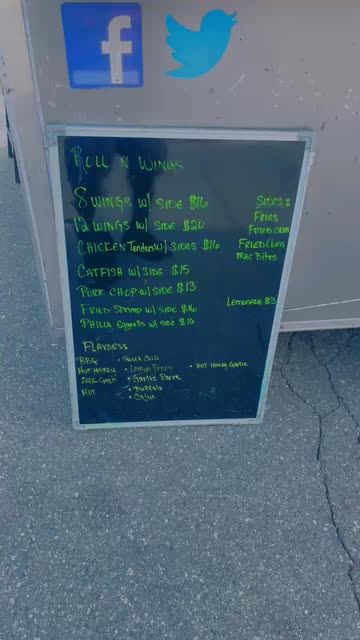 f
Roll N Wings
8 Wings w/ Side $16
12 Wings w/ Side $20
Chicken Tenders w/ Sides $16
Catfish w/ Side $15
Pork Chop w/ Side $13
Fried Shrimp w/ Side $16
Philly Eggrolls w/ Side $16
Sides:
Fries
Fried Okra
Fried Corn
Mac Bites
Lemonade $3
Flavors:
BBQ
Hot Honey
Gold
Hot
• Sweet Chili
• Lemon Pepper
• Garlic Parm
• Buffalo
• Cajun
• Hot Honey Garlic